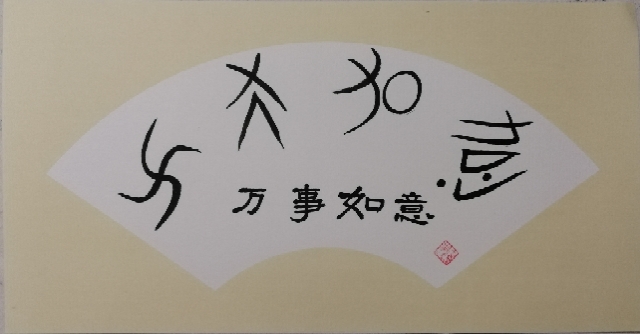 万事如意
万事如意